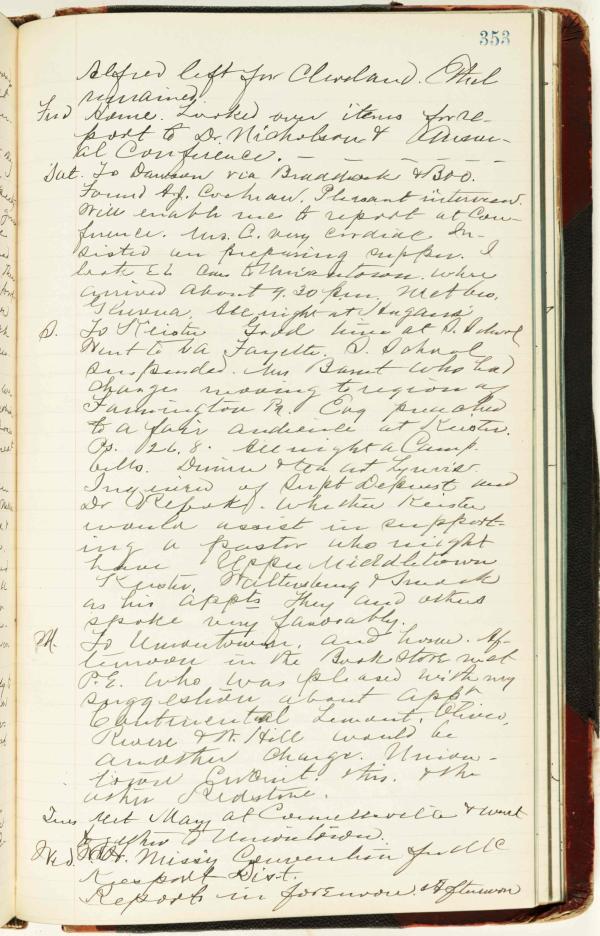 353
Alfred left for Cleveland. Ethel
remained.
Fri Home. Looked over items for re-
port to Dr. Nicholson & Annu-
al Conference. — — — — —
Sat. To Dawson via Braddock & B&O.
Found A.J. Cochran. Pleasant interview.
Will enable me to report at Con-
ference. Mrs. C. very cordial. In-
sisted on preparing supper. I
took El. Cars to Uniontown where
arrived about 9.30 pm. Met bro.
All night at
S. To Keister Good time at S. School
Went to La Fayette. S. School
suspended. Mrs Barnt who had
charge moving to region of
Farmington Pa. Evg preached
to a fair audience at Keister.
Ps. 126.8. All night a Camp-
bells. Dinner & tea at
Inquired of Supt and
Dr whether Keister
would assist in support-
ing a pastor who might
have Upper Middletown
Keister, Waltersburg & Smock
as his appts They and others
spoke very favorably.
M. To Uniontown, and home. Af-
ternoon in the Book Store met
P.E. who was pleased with my
suggestion about appn
Continental Lemont, Oliver,
Revere & W. Hill would be
another charge. Union-
town Circuit this. & the
other Redstone.
Tues Met Mary at Connellsville & went
to Uniontown.
Wed. Missy Convention for Mc
Keesport Dist.
Reports in forenoon. Afternoon